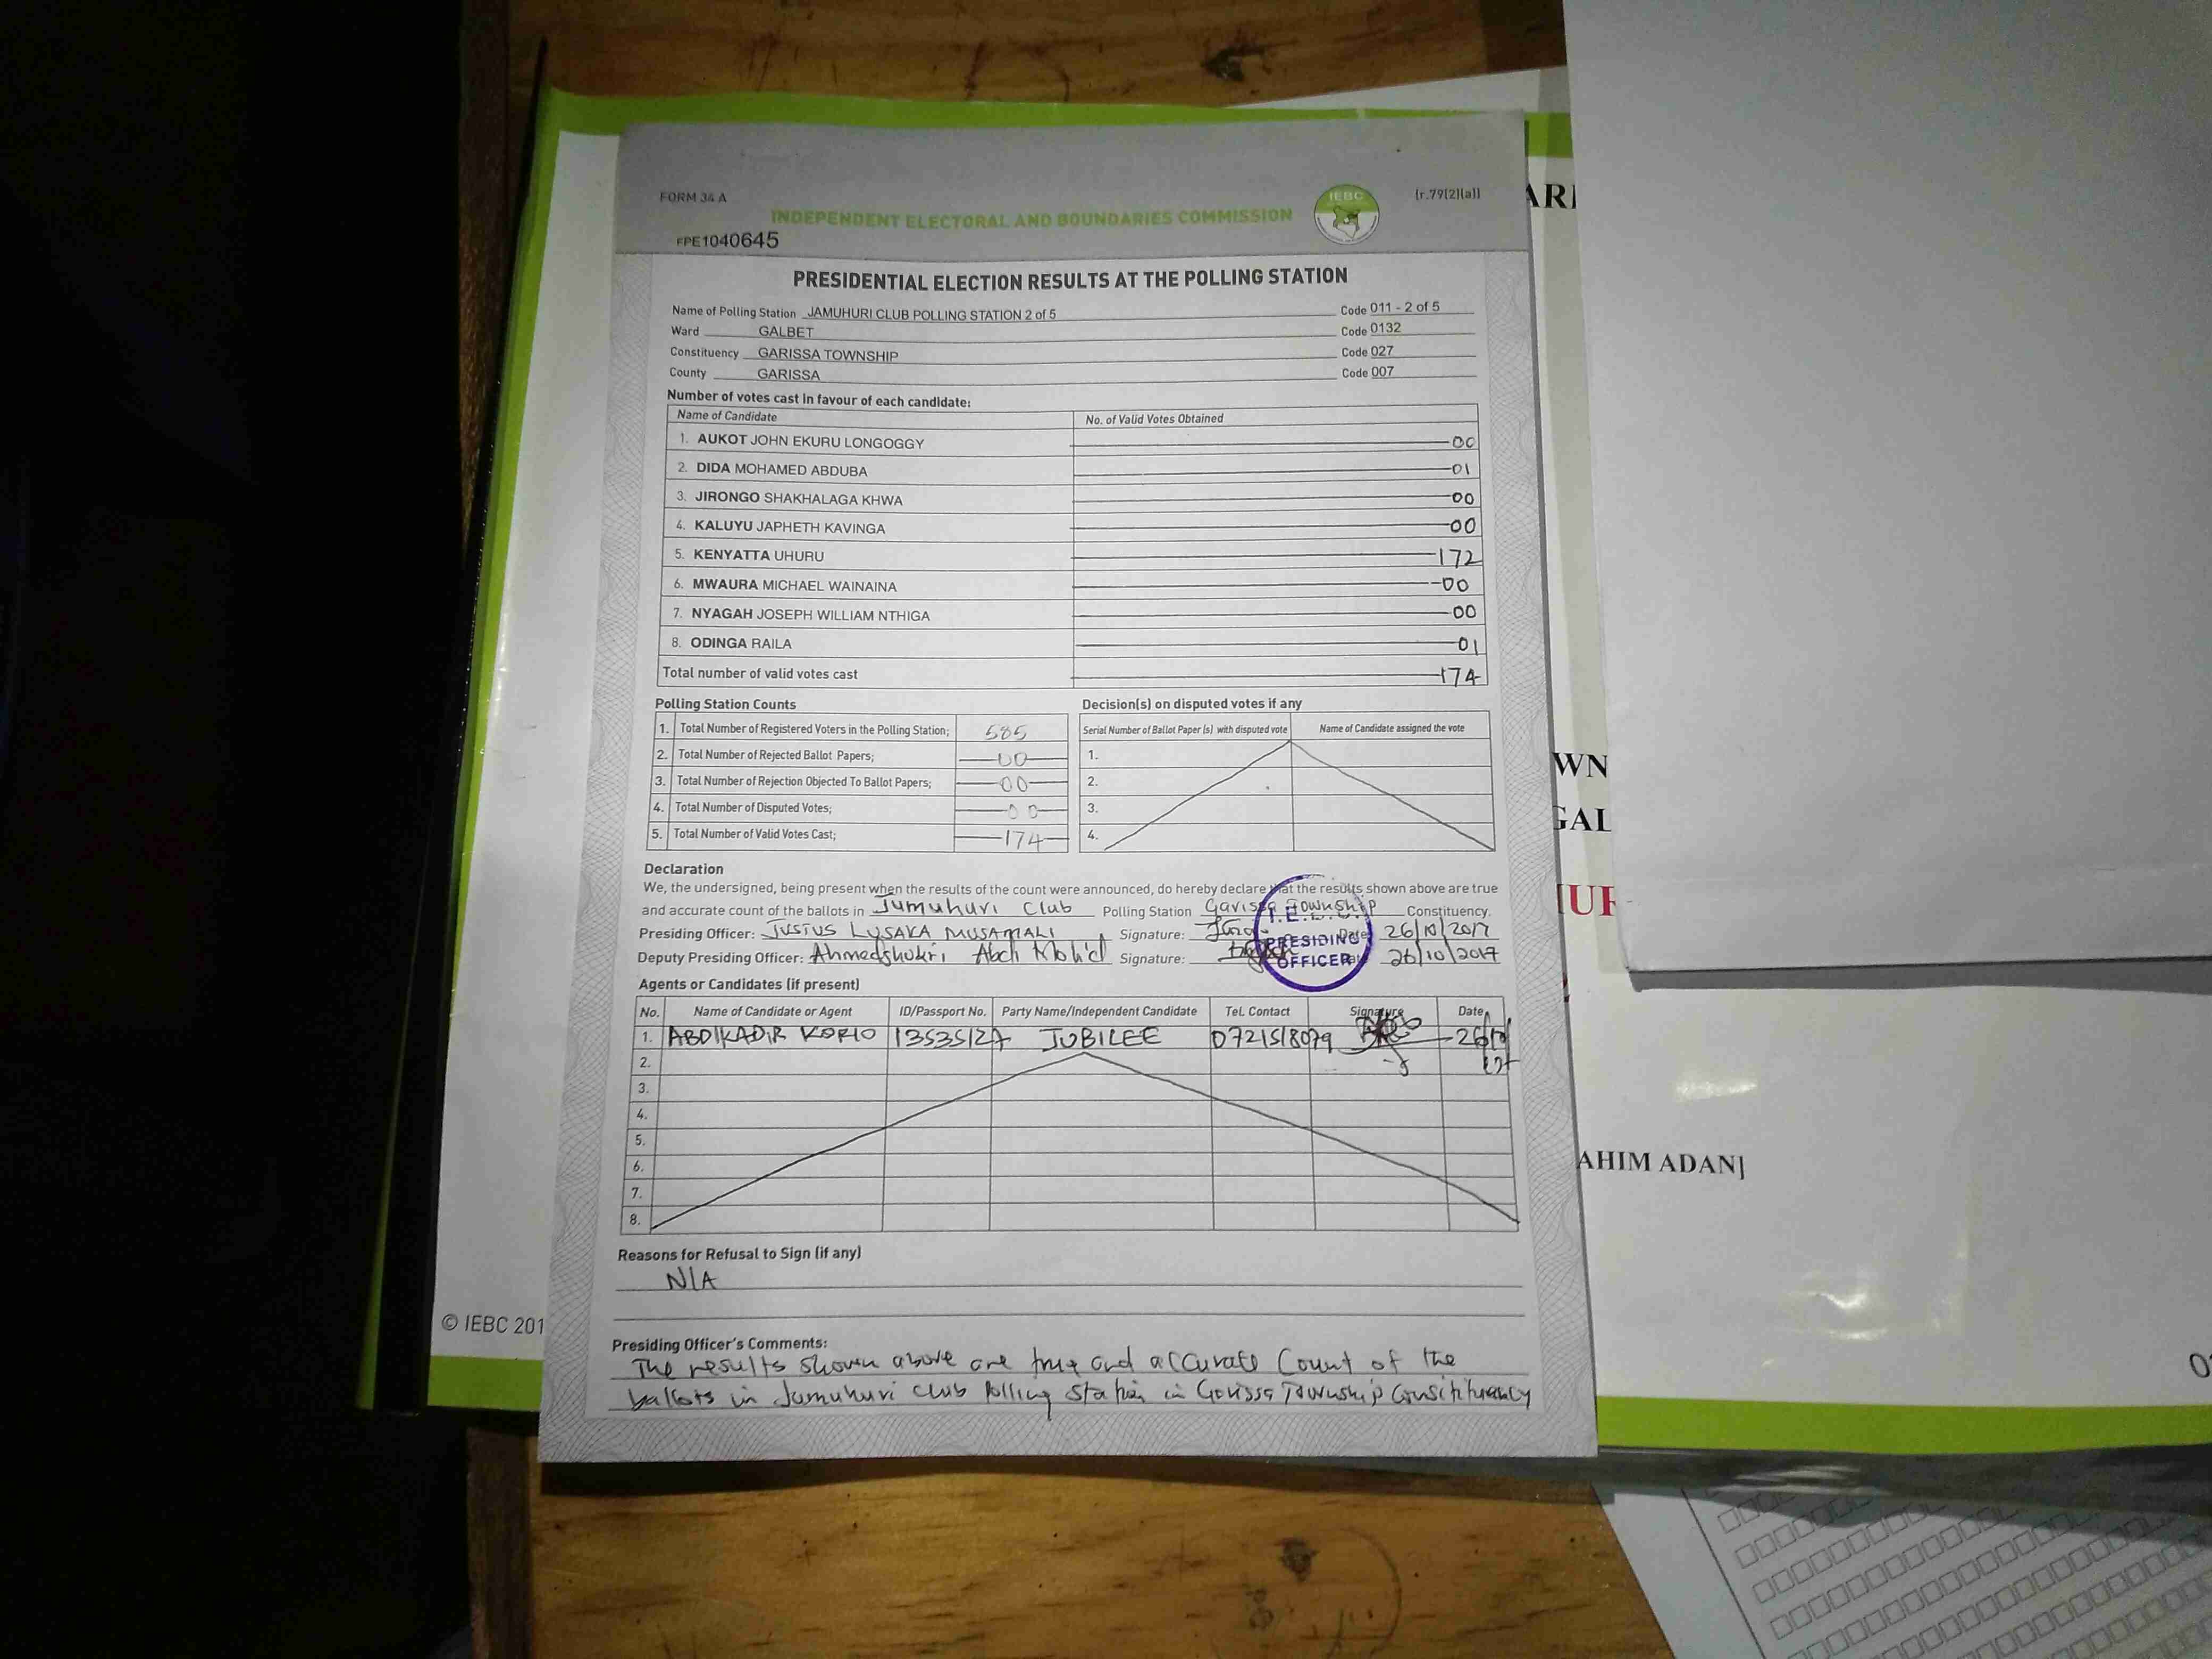 FORM 34 A
(r.79(2)(a))
IEBC
INDEPENDENT ELECTORAL AND BOUNDARIES COMMISSION
FPE1040645
PRESIDENTIAL ELECTION RESULTS AT THE POLLING STATION
Name of Polling Station JAMUHURI CLUB POLLING STATION 2 of 5 Code 011 - 2 of 5
Ward GALBET Code 0132
Constituency GARISSA TOWNSHIP Code 027
County GARISSA Code 007
Number of votes cast in favour of each candidate:
Name of Candidate No. of Valid Votes Obtained
1. AUKOT JOHN EKURU LONGOGGY 00
2. DIDA MOHAMED ABDUBA 01
3. JIRONGO SHAKHALAGA KHWA 00
4. KALUYU JAPHETH KAVINGA 00
5. KENYATTA UHURU 172
6. MWAURA MICHAEL WAINAINA 00
7. NYAGAH JOSEPH WILLIAM NTHIGA 00
8. ODINGA RAILA 01
Total number of valid votes cast 174
Polling Station Counts
1. Total Number of Registered Voters in the Polling Station; 585
2. Total Number of Rejected Ballot Papers; 00
3. Total Number of Rejection Objected To Ballot Papers; 00
4. Total Number of Disputed Votes; 00
5. Total Number of Valid Votes Cast; 174
Decision(s) on disputed votes if any
Serial Number of Ballot Paper (s) with disputed vote Name of Candidate assigned the vote
1.
2.
3.
4.
Declaration
We, the undersigned, being present when the results of the count were announced, do hereby declare that the results shown above are true
and accurate count of the ballots in Jumuhuri Club Polling Station Garissa Township Constituency.
Presiding Officer: JUSTUS LUSAKA MUSAMALI Signature: Date 26/10/2017
Deputy Presiding Officer: Ahmedshukri Abdi Mohd Signature: Date 26/10/2017
PRESIDING
OFFICER
Agents or Candidates (if present)
No. Name of Candidate or Agent ID/Passport No. Party Name/Independent Candidate Tel. Contact Signature Date
1. ABDIKADIR KORIO 13535127 JUBILEE 0721518079 26/10/17
2.
3.
4.
5.
6.
7.
8.
Reasons for Refusal to Sign (if any)
N/A
Presiding Officer's Comments:
The results shown above are true and accurate Count of the
ballots in Jumuhuri club Polling Station in Garissa Township Consitituency
© IEBC 201
ARI
WN
GAL
UR
AHIM ADAN]